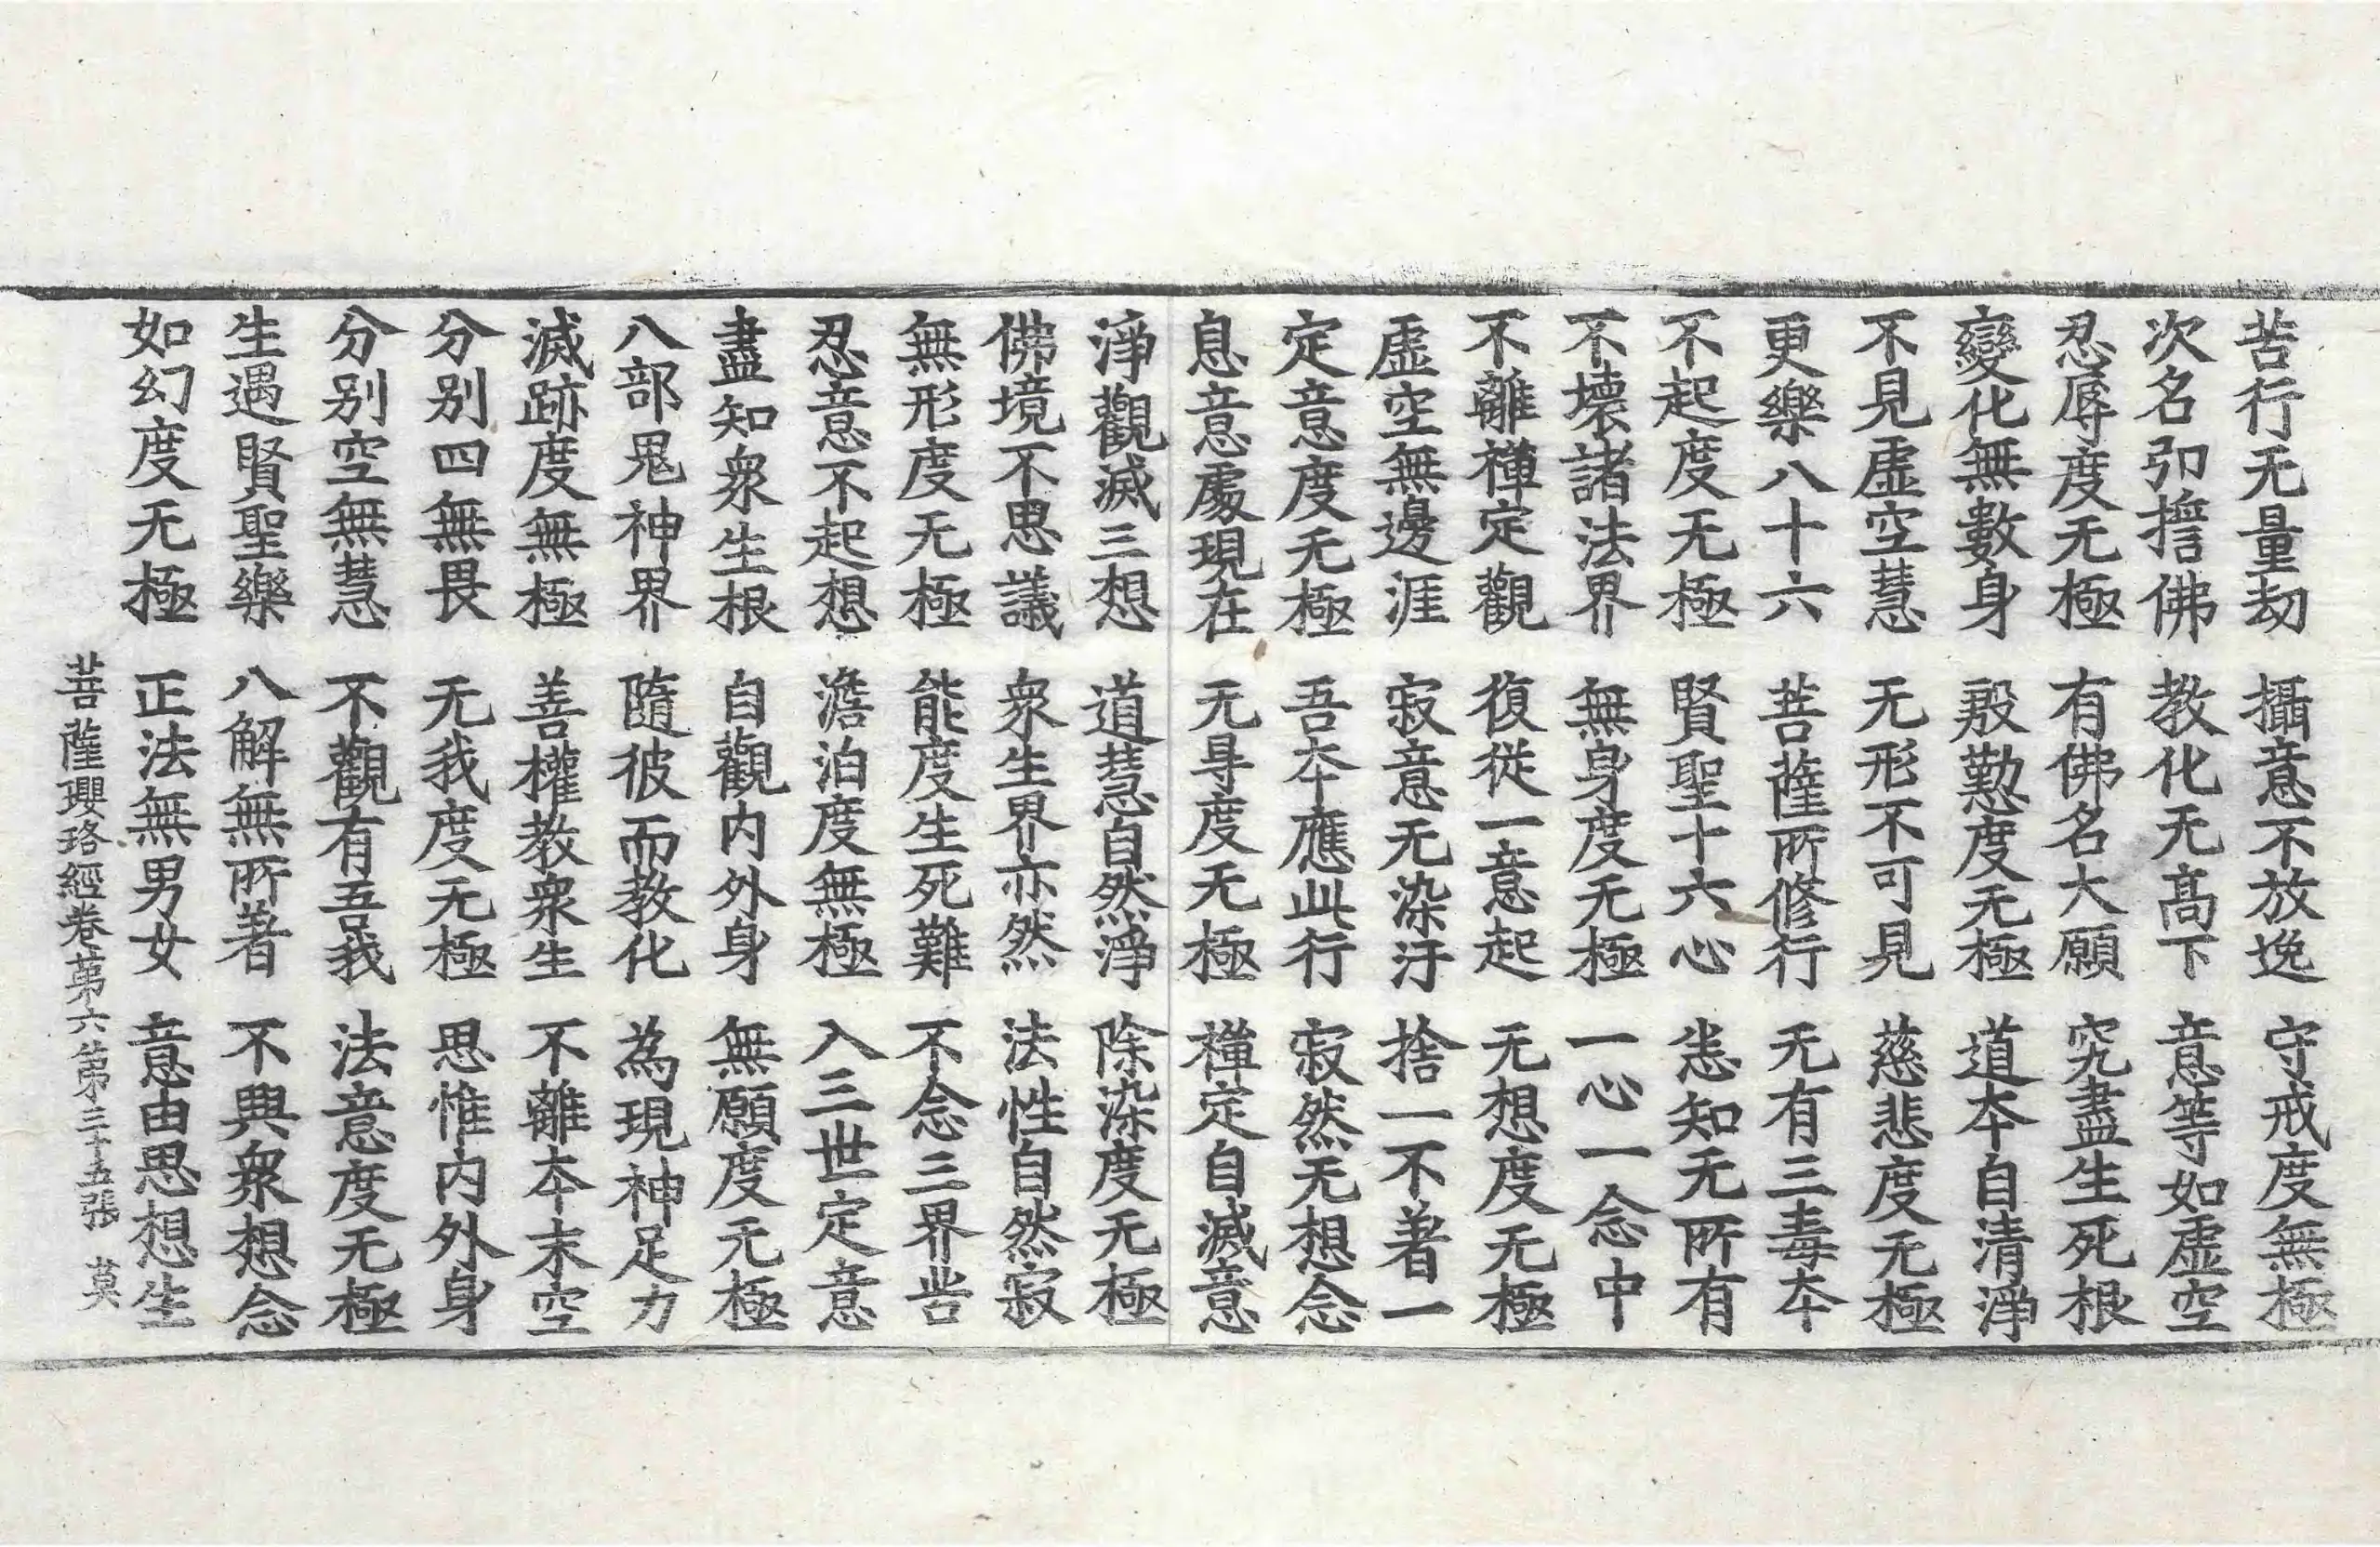 苦行无量劫 攝意不放逸 守戒度無極
次名弘擔佛 教化无高下 意等如虚空
忍辱度无極 有佛名大願 究盡生死根
變化無數身 殷勤度无極 道本自清淨
不見虚空慧 无形不可見 慈悲度无極
更樂八十六 菩薩所修行 无有三毒本
不起度无極 賢聖十六心 恙知无所有
不壞諸法界 無身度无極 一心一念中
不離禪定觀 復從一意起 无想度无極
虚空無邊涯 寂意无染汙 捨一不著一
定意度无極 吾本應此行 寂然无想念
息意處現在 无身度无極 禪定自滅意
淨觀滅三想 道慧自然淨 除染度无極
佛境不思議 衆生界亦然 法性自然寂
無形度无極 能度生死難 不念三界苦
忍意不起想 澹泊度無極 入三世定意
盡知衆生根 自觀内外身 無願度无極
八部鬼神界 隨彼而教化 為現神足力
滅跡度無極 善權教衆生 不離本末空
分别四無畏 无我度无極 思惟内外身
分别空無慧 不觀有吾我 法意度无極
生遇賢聖樂 八解無所著 不興衆想念
如幻度无極 正法無男女 意由思想生
菩薩瓔珞經卷苐六 第三十五張 莫